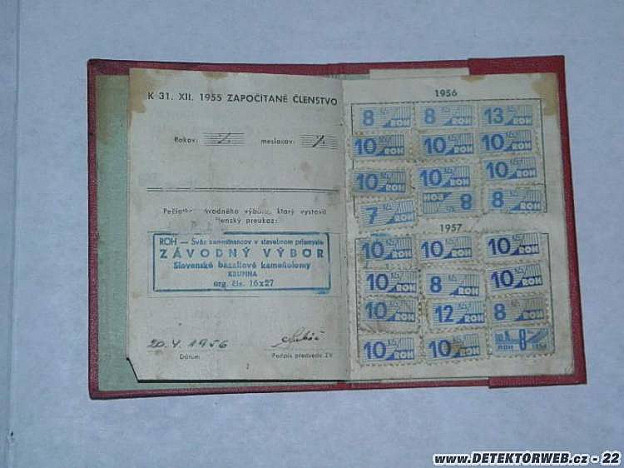 K 31. XII. 1955 ZAPOČÍTANÉ ČLENSTVO
Rokov: mesiacov:
Pečiatka závodného výboru, ktorý vystavil
členský preukaz:
ROH – Sväz zamestnancov v stavebnom priemysle
ZÁVODNÝ VÝBOR
Slovenské bazaltové kameňolomy
KRUPINA
org. čís. 16x27
20. V. 1956
Dátum Podpis predsedu ZV
2
1956
8 ROH 8 ROH 13 ROH
10 Kčs ROH 10 ROH 10 Kčs ROH
10 Kčs ROH 10 ROH 10 Kčs ROH
7 Kčs ROH ROH 8 8 Kčs ROH
1957
10 Kčs ROH 10 ROH 10 Kčs ROH
10 Kčs ROH 8 Kčs ROH 10 Kčs ROH
10 ROH 12 Kčs ROH 8 Kčs ROH
10 Kčs ROH 10 Kčs ROH ROH 8 Kčs
www.DETEKTORWEB.cz - 22